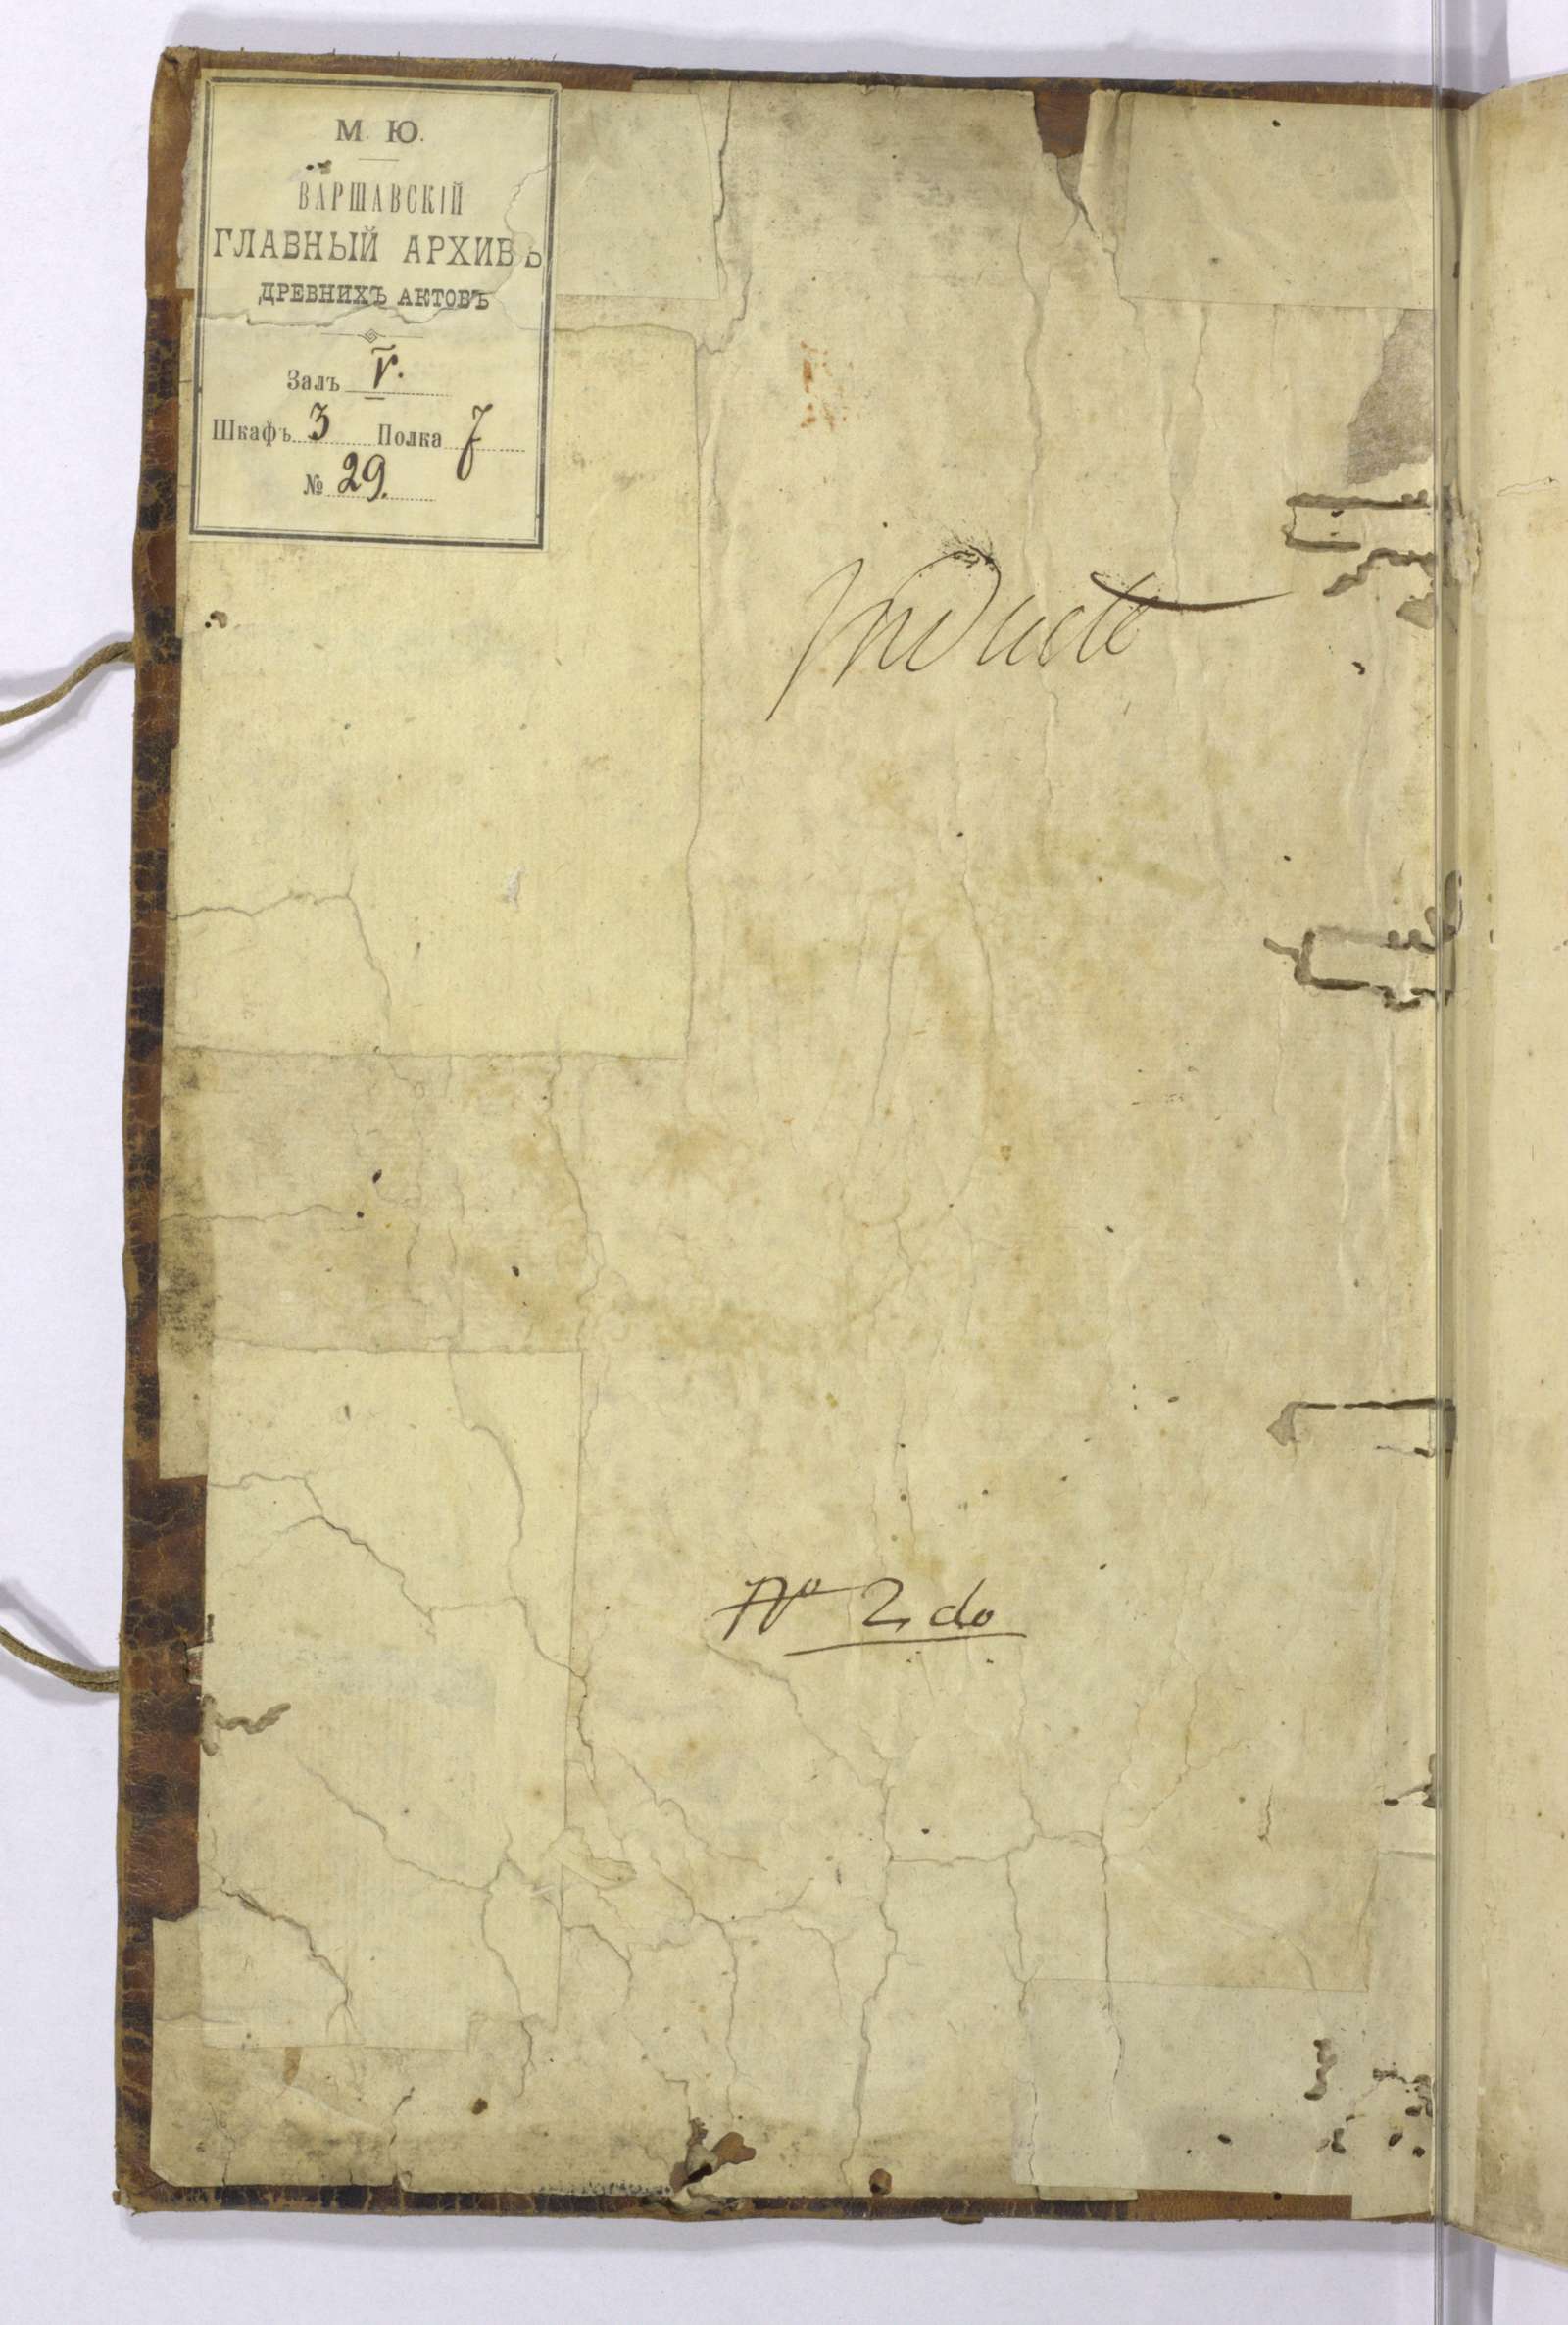 М. Ю.
ВАРШАВСКІЙ
ГЛАВНЫЙ АРХИВЪ
ДРЕВНИХЪ АКТОВЪ
Залъ V.
Шкафъ 3 Полка f
№ 29.
Inducte
No 2do